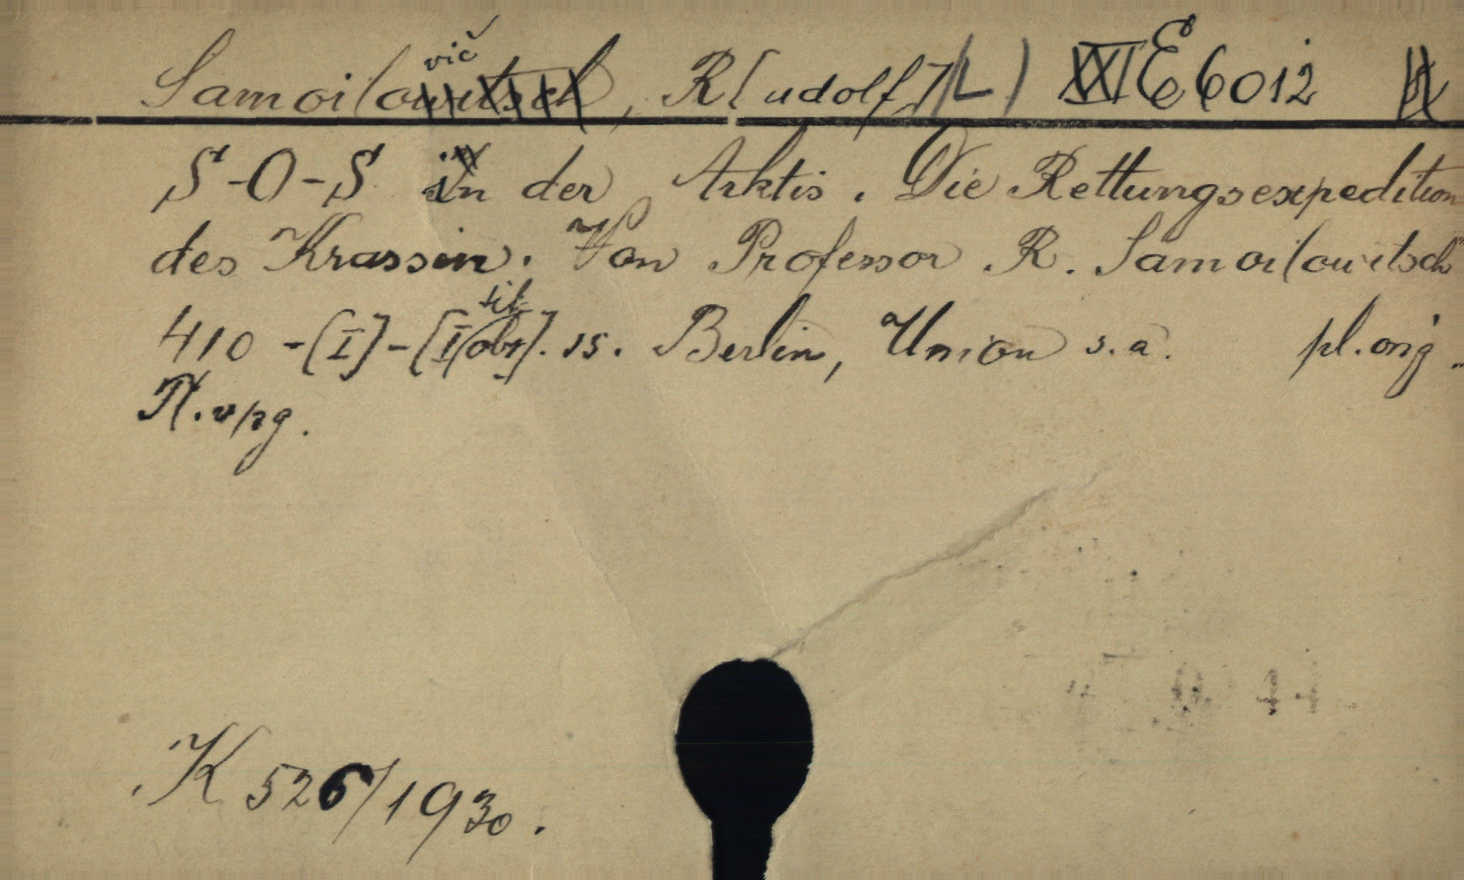 Samoilowitsch vič, R[udolf] (L) XXI E 6012
S-O-S in der Arktis. Die Rettungsexpedition
des Krassin. Von Professor R. Samoilowitsch
410 -[I]-[I obr]. 1s. Berlin, Union s.a. pl. orig.
K 526/1930.